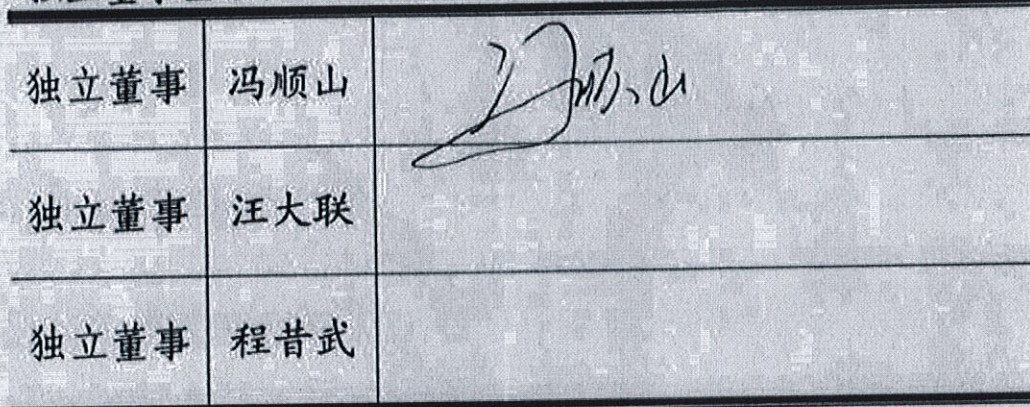 独立董事 冯顺山 冯顺山
独立董事 汪大联
独立董事 程昔武